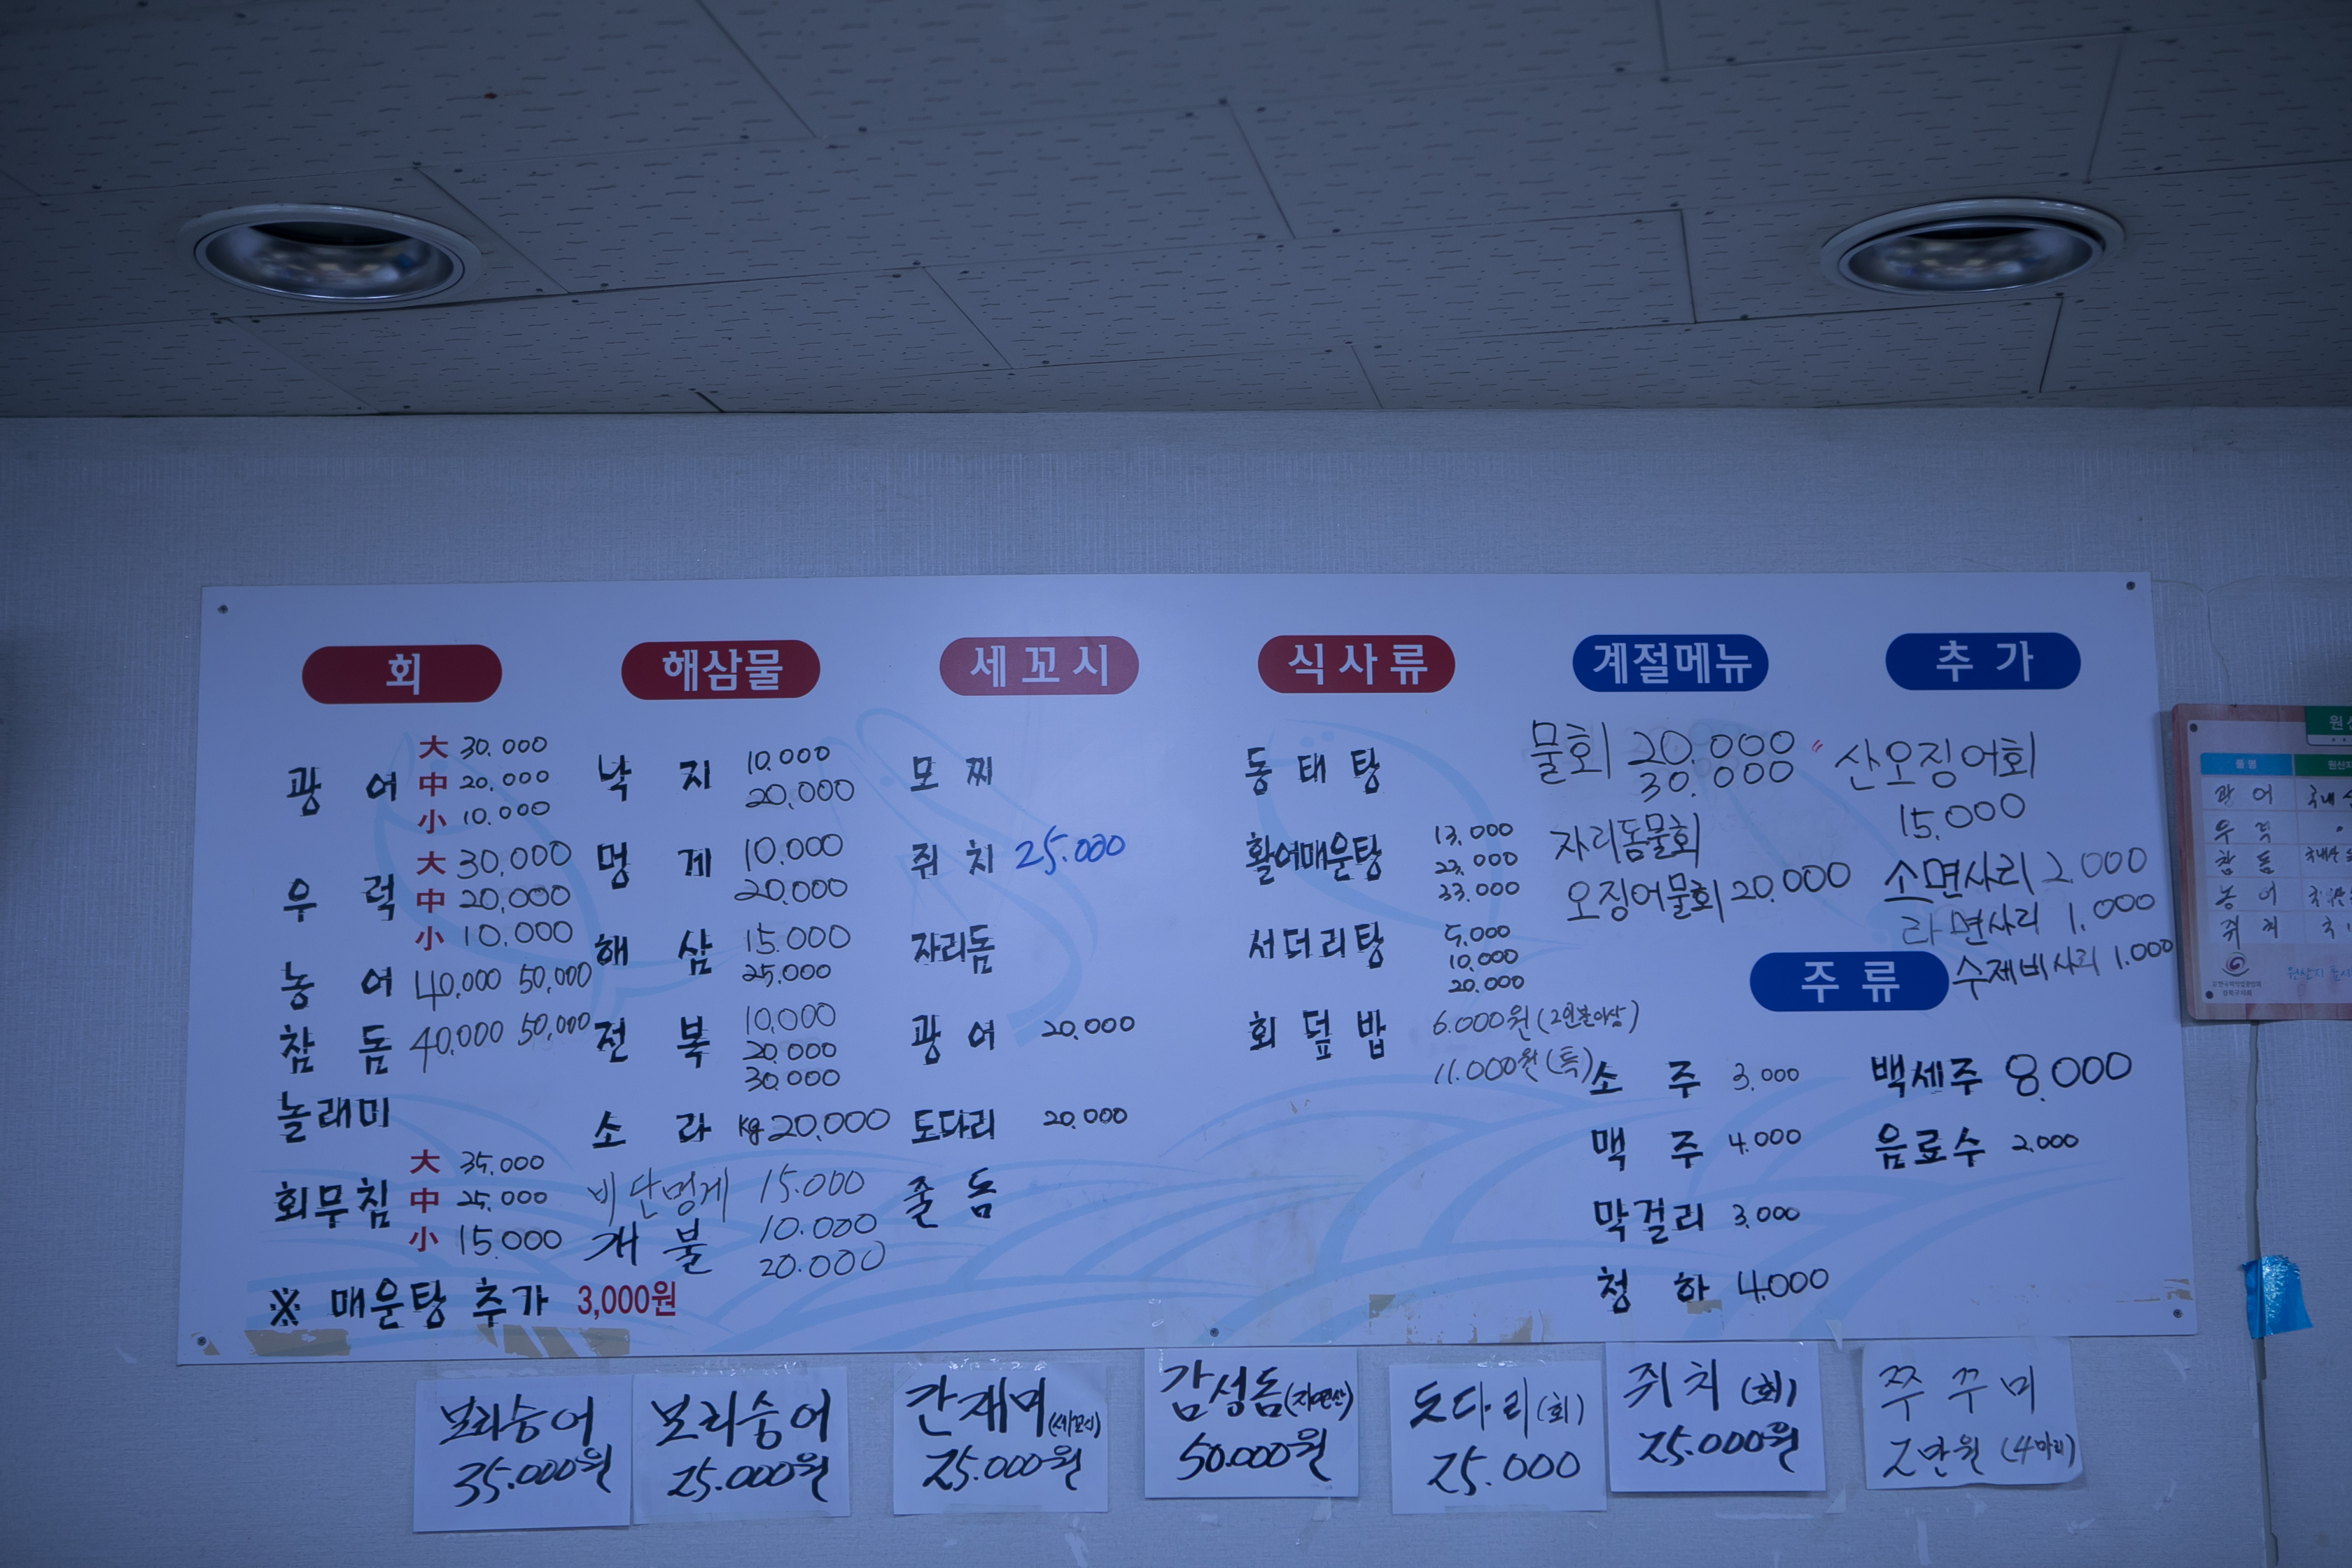 회
광 어 大 30.000
中 20.000
小 10.000
우 럭 大 30,000
中 20,000
小 10.000
농 어 40,000 50,000
참 돔 40,000 50,000
놀래미
회무침 大 35.000
中 25.000
小 15.000
※ 매운탕 추가 3,000원
해삼물
낙 지 10.000
20,000
멍 게 10.000
20,000
해 삼 15.000
25,000
전 복 10,000
20.000
30.000
소 라 kg 20,000
비단멍게 15.000
개 불 10.000
20.000
세꼬시
모 찌
쥐 치 25.000
자리돔
광 어 20.000
도다리 20.000
줄 돔
식사류
동 태 탕
활어매운탕 13.000
23.000
33.000
서더리탕 5,000
10,000
20.000
회 덮 밥 6.000원 (2인분이상)
11.000원 (특)
계절메뉴
물회 20.000
30.000
자리돔물회
오징어물회 20.000
추 가
〃 산오징어회
15.000
소면사리 2.000
라면사리 1.000
수제비사리 1.000
주 류
소 주 3.000
맥 주 4.000
막걸리 3.000
청 하 4.000
백세주 8.000
음료수 2.000
보리숭어
35.000원
보리숭어
25.000원
간재미 (세꼬시)
25.000원
감성돔 (자연산)
50.000원
도다리 (회)
25.000
쥐치 (회)
25.000원
쭈 꾸 미
2만원 (4마리)
품명
광 어 국내
우 럭 〃
참 돔 국내산
농 어
쥐 치 국